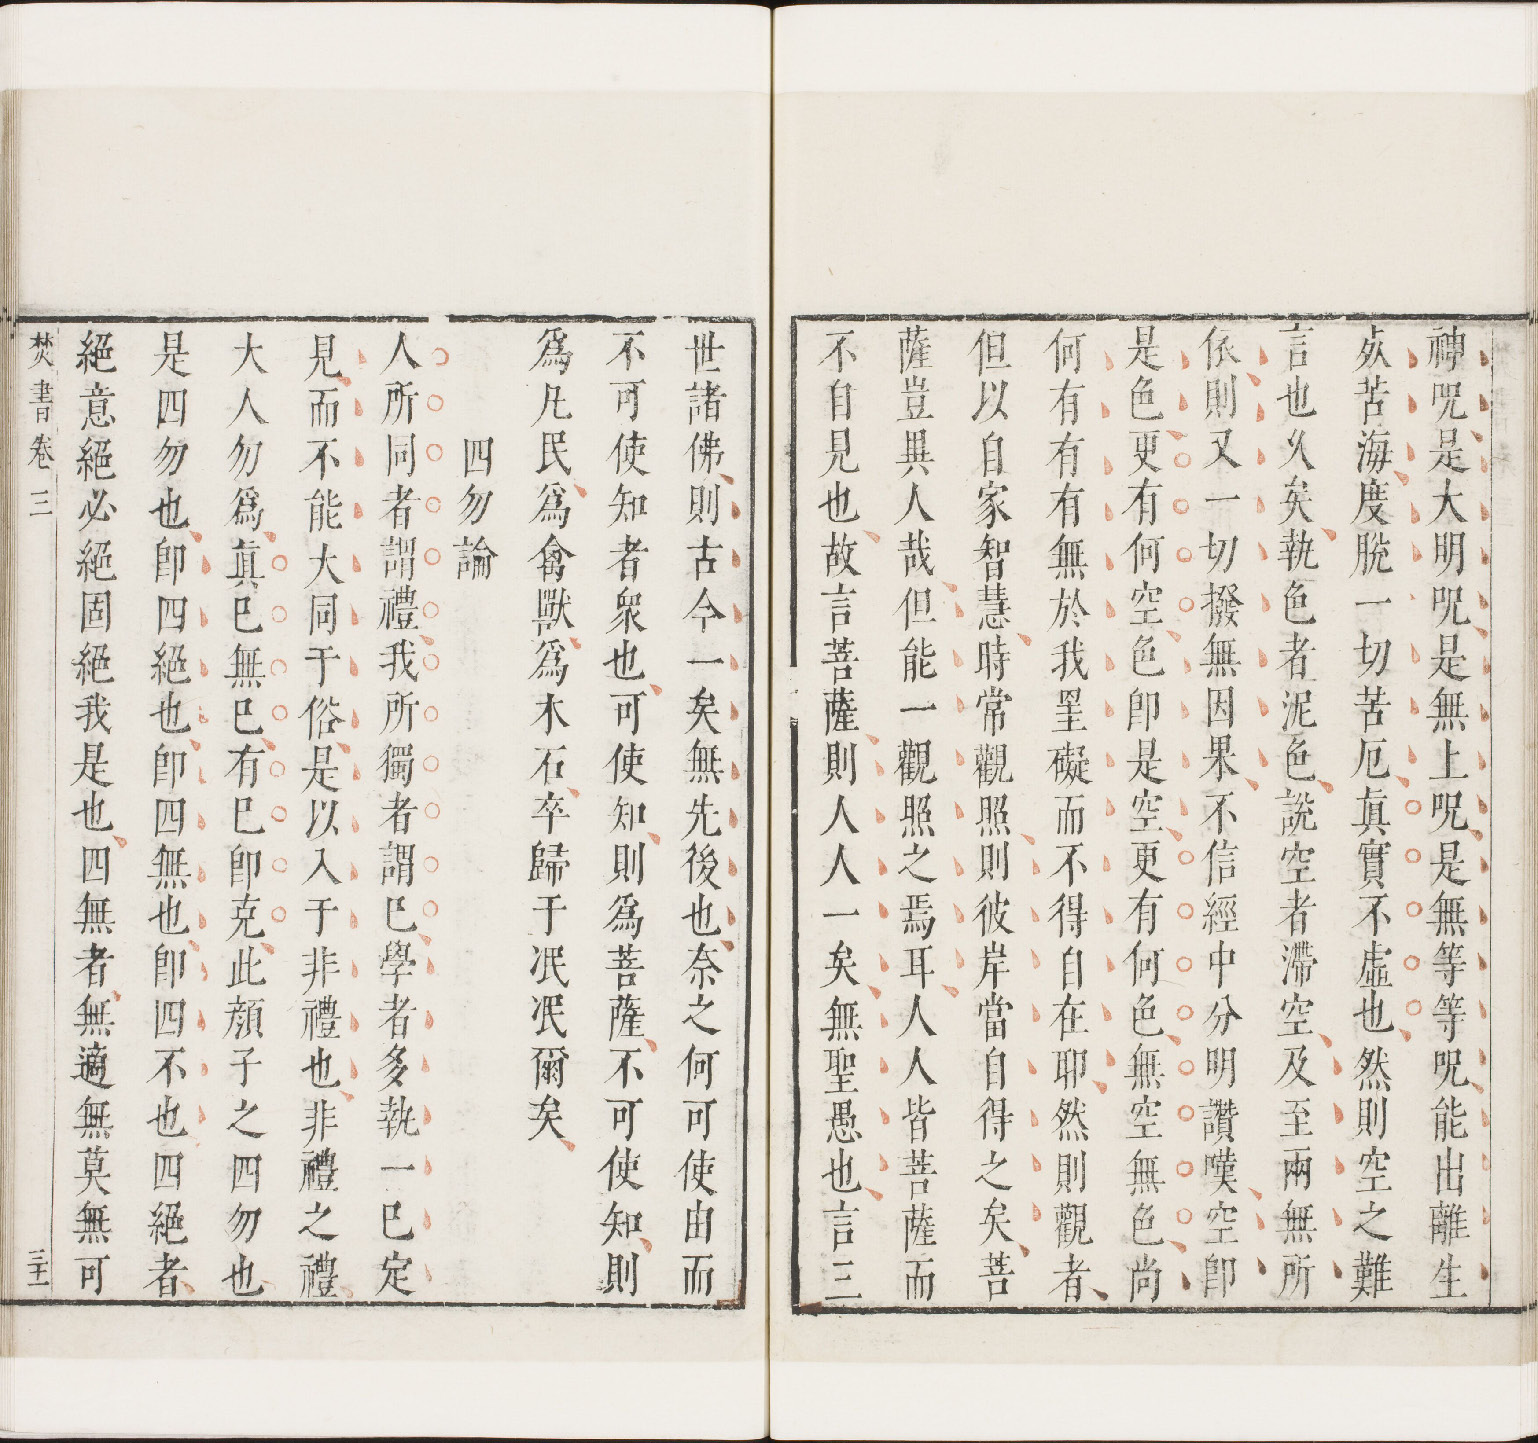 神呪是大明呪是無上呪是無等等呪能出離生
死苦海度脫一切苦厄真實不虛也然則空之難
言也久矣執色者泥色說空者滯空及至兩無所
依則又一切撥無因果不信經中分明讚嘆空卽
是色更有何空色卽是空更有何色無空無色尚
何有有有無於我罣礙而不得自在耶然則觀者
但以自家智慧時常觀照則彼岸當自得之矣菩
薩豈異人哉但能一觀照之焉耳人人皆菩薩而
不自見也故言菩薩則人人一矣無聖愚也言三
世諸佛則古今一矣無先後也奈之何可使由而
不可使知者衆也可使知則爲菩薩不可使知則
爲凡民爲禽獸爲木石卒歸于泯泯爾矣
四勿論
人所同者謂禮我所獨者謂已學者多執一已定
見而不能大同于俗是以入于非禮也非禮之禮
大人勿爲眞已無已有已卽克此顏子之四勿也
是四勿也卽四絕也卽四無也卽四不也四絕者
絕意絕必絕固絕我是也四無者無適無莫無可
焚書卷三
三十一